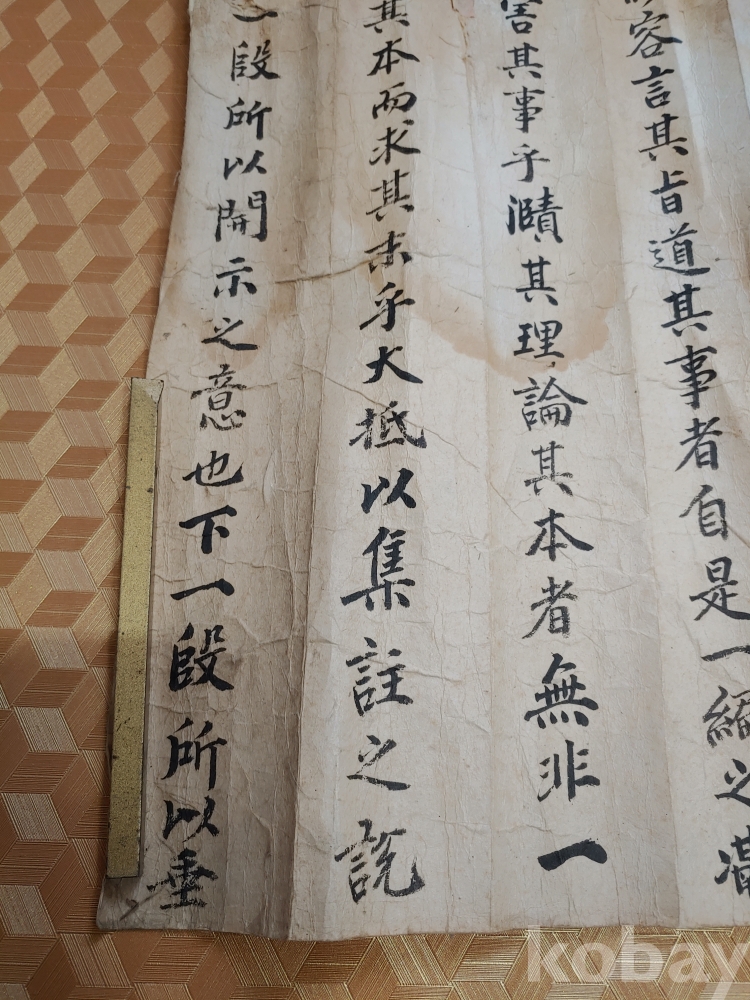 容言其旨道其事者自是一編之
害其事乎其理論其本者無非一
其本而求其末乎大抵以集註之説
一段所以開示之意也下一段所以垂
kobay